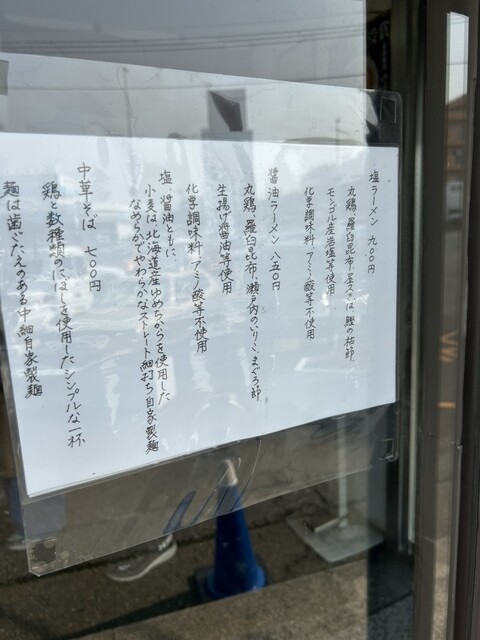 塩ラーメン 九〇〇円
丸鶏、羅臼昆布、屋久さば、鰹の枯節
モンゴル産岩塩等使用
化学調味料 アミノ酸等不使用
醤油ラーメン 八五〇円
丸鶏、羅臼昆布、瀬戸内のいりこ、まぐろ節
生揚げ醤油等使用
化学調味料 アミノ酸等不使用
塩、醤油ともに、
小麦は、北海道産ゆめちからを使用した
なめらかでやわらかなストレート細打ち自家製麺
中華そば 七〇〇円
鶏と数種類のにぼしを使用したシンプルな一杯
麺は歯ごたえのある中細自家製麺